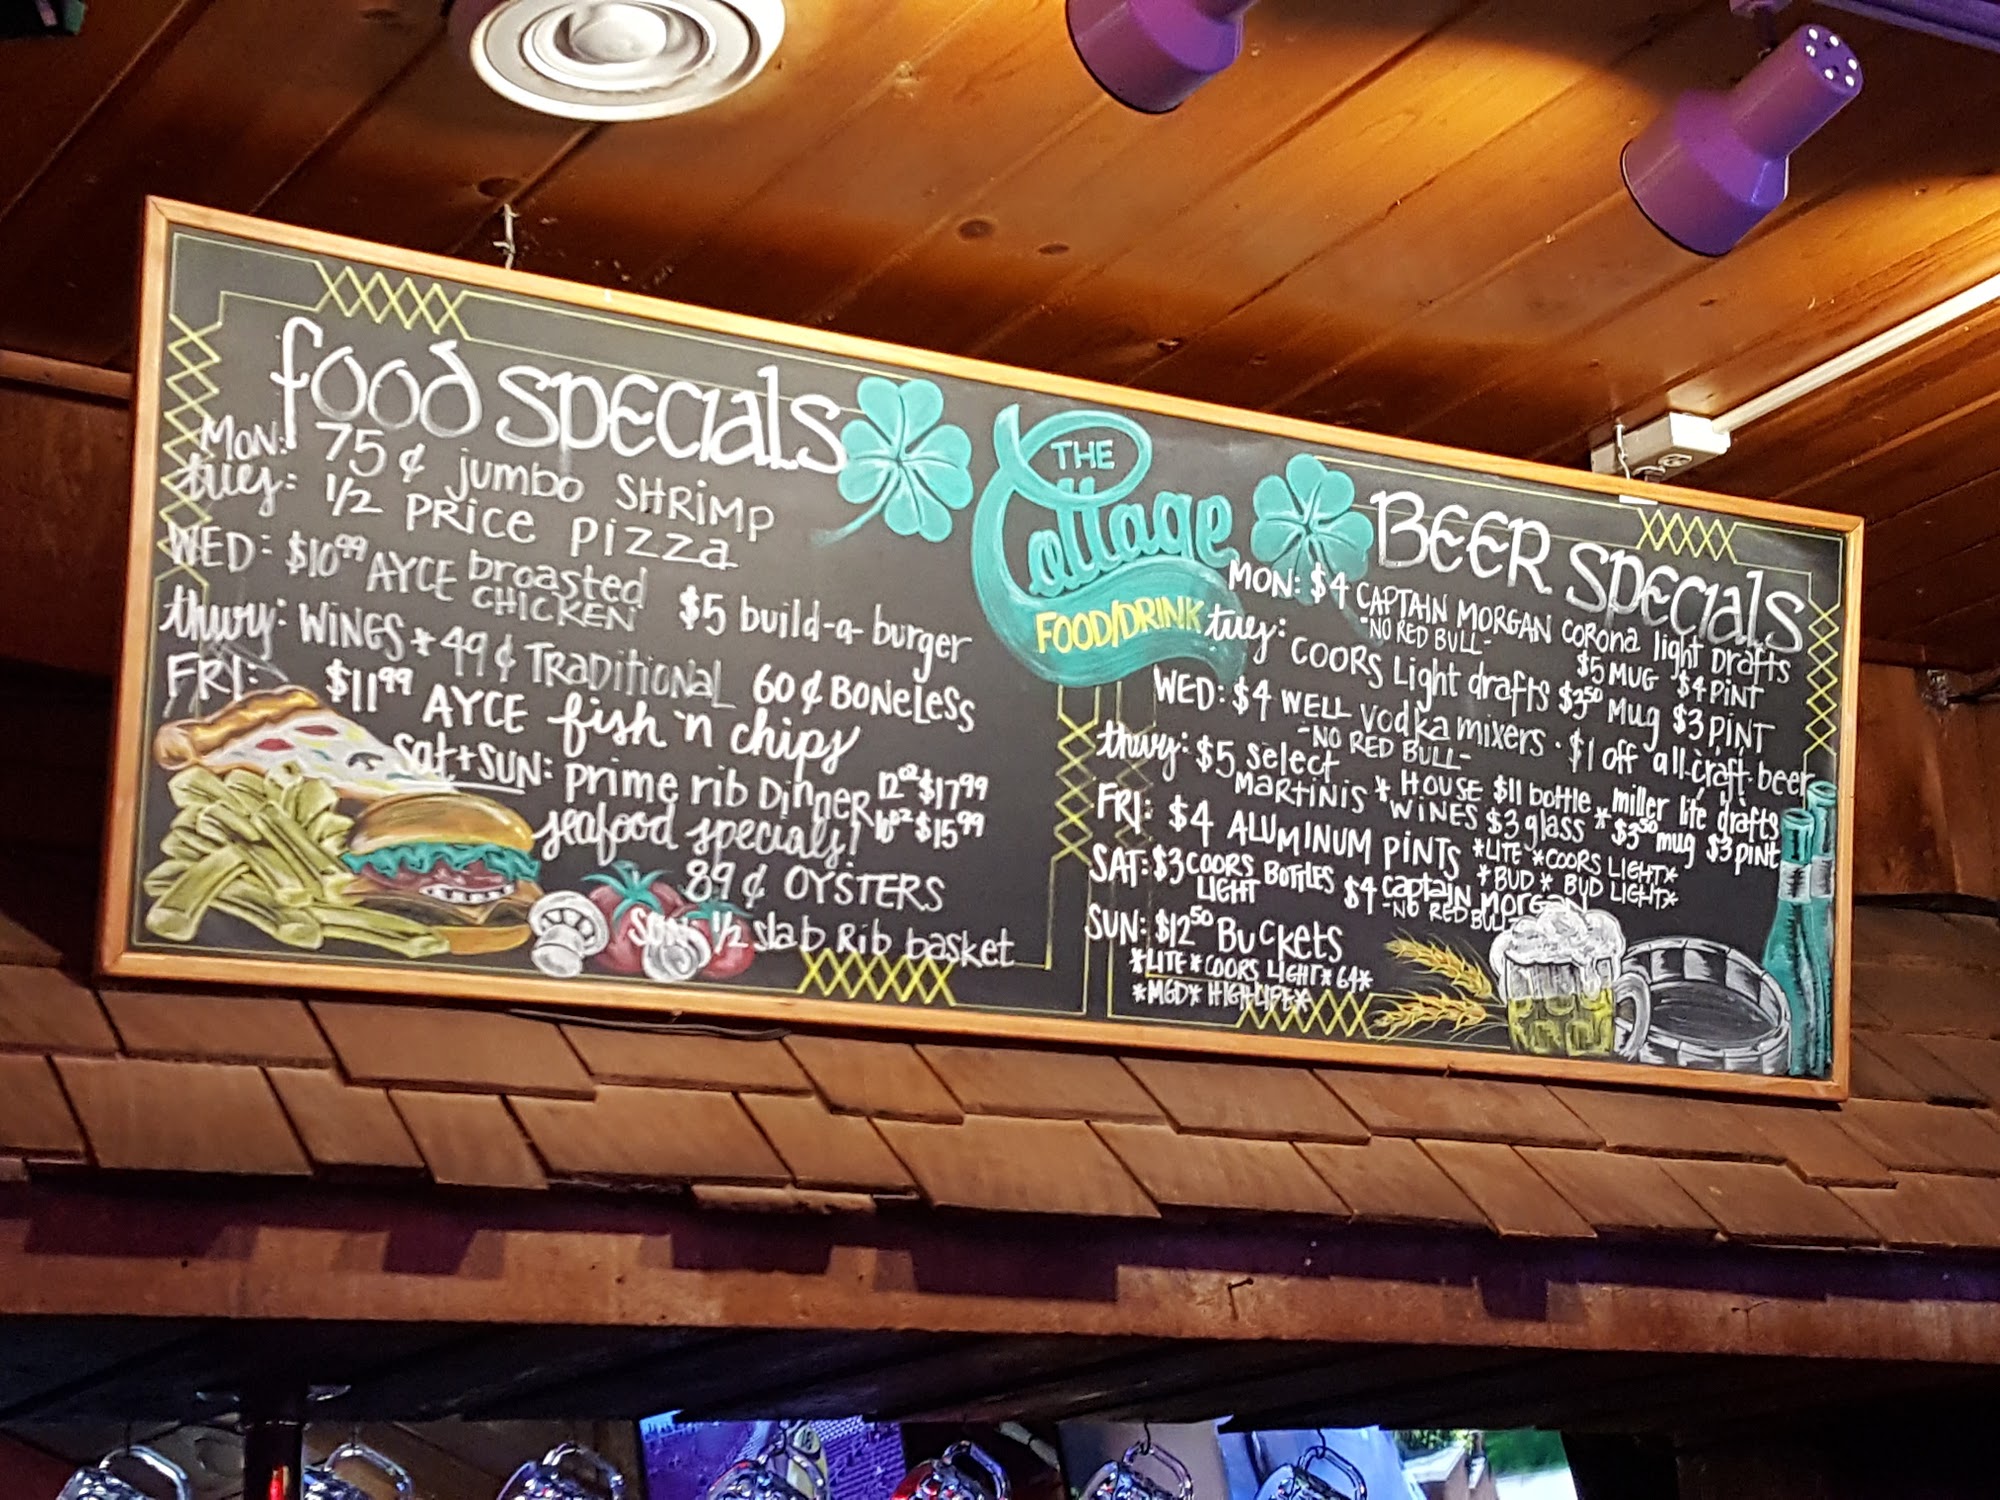 food specials
MON: 75¢ jumbo SHRiMP
tues: 1/2 PRice Pizza
WED: $10⁹⁹ AYCE broasted CHICKEN $5 build-a-burger
thurs: WINGS * 49¢ Traditional 60¢ BONeLess
FRI: $11⁹⁹ AYCE fish 'n chips
Sat + SUN: prime rib Dinner 12oz $17⁹⁹
10oz $15⁹⁹
seafood specials!
89¢ OYSTERS
SUN: 1/2 slab Rib basket
THE Cottage
FOOD/DRINK
BEER Specials
MON: $4 CAPTAIN MORGAN Corona light Drafts
-NO RED BULL- $5 MUG $4 PINT
tues: COORS Light drafts $3⁵⁰ Mug $3 PiNT
WED: $4 WELL Vodka mixers · $1 off all craft beer
-NO RED BULL-
thurs: $5 select Martinis * HOUSE WINES $11 bottle $3 glass * miller lite drafts $3⁵⁰ mug $3 pint
FRI: $4 ALUMINUM PiNTS *LITE *COORS LIGHT*
*BUD * BUD LIGHT*
SAT: $3 COORS LIGHT BOTTLES $4 Captain Morgan
-NO RED BULL-
SUN: $12⁵⁰ BUCKETS
*LITE*COORS LIGHT*64*
*MGD* HIGHLIFE*